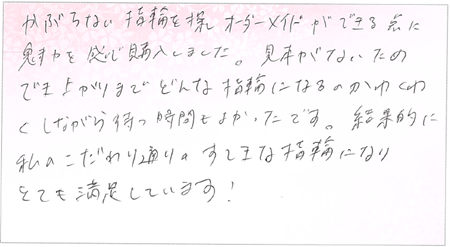 かぶらない指輪を探しオーダーメイドができる点に
魅力を感じ購入しました。見本がないため
でき上がりまでどんな指輪になるのかわくわ
くしながら待つ時間もよかったです。結果的に
私のこだわり通りのすてきな指輪になり
とても満足しています！